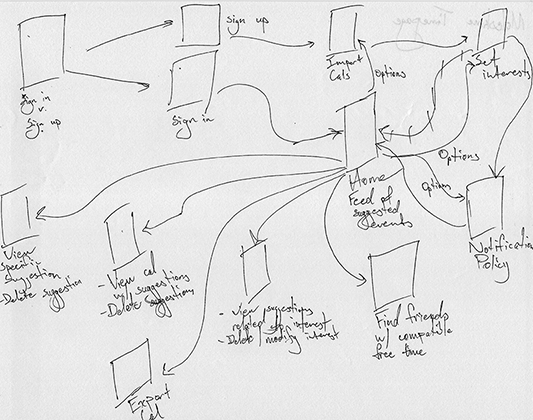 Sign in
v.
Sign up
sign up
Sign in
Import
Cals
Options
Set
interests
Options
Options
Home
Feed of
suggested
events
Notification
Policy
View
specific
suggestion
- Delete suggestion
- View cal
w/ suggestions
- Delete suggestions
- View suggestions
related to interest
- Delete / modify interest
Find friends
w/ compatible
free time
Export
Cal